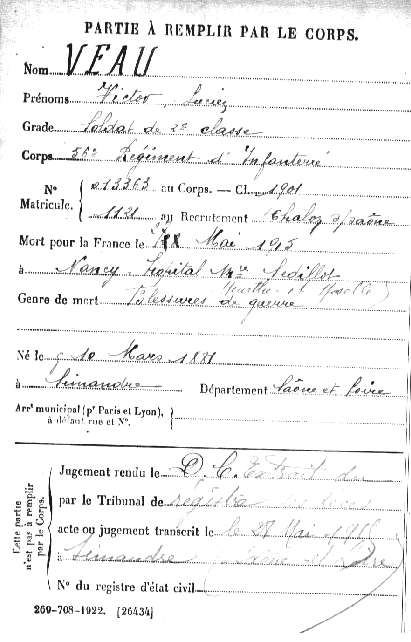 PARTIE À REMPLIR PAR LE CORPS.
Nom VEAU
Prénoms Victor, Lucien
Grade Soldat de 2e classe
Corps 56e Régiment d'Infanterie
N° Matricule. { 013363 au Corps. — Cl. 1901
1121 au Recrutement Chalon s/saône
Mort pour la France le Mai 1915
à Nancy Hôpital Mre Sédillot
(Meurthe et Moselle)
Genre de mort Blessures de guerre
Né le 10 Mars 1881
à Simandre Département Saône et Loire
Arrt municipal (pr Paris et Lyon), à défaut rue et N°. }
Cette partie n'est pas à remplir par le Corps.
Jugement rendu le D. C. Extrait du
par le Tribunal de registre
acte ou jugement transcrit le le 27 Mai
à Simandre Saône et Loire
N° du registre d'état civil
269-708-1922. [26434]